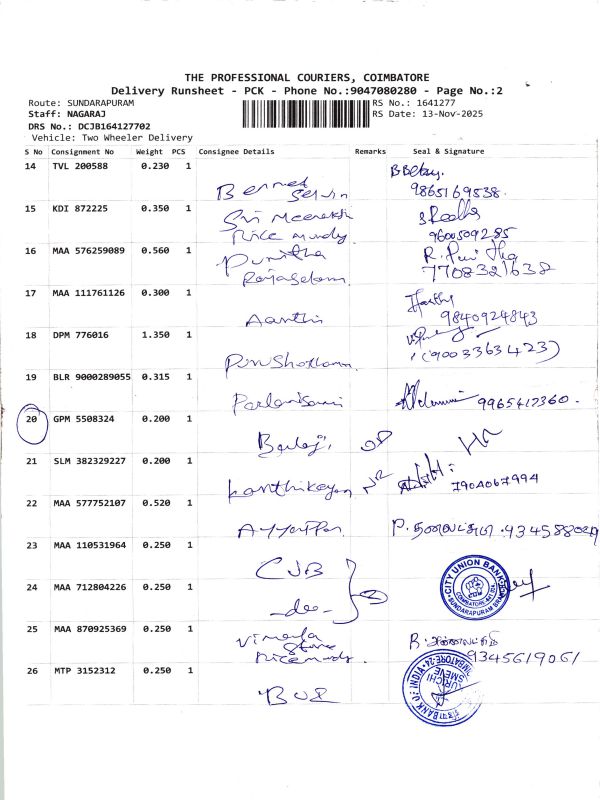 THE PROFESSIONAL COURIERS, COIMBATORE
Delivery Runsheet - PCK - Phone No.:9047080280 - Page No.:2
Route: SUNDARAPURAM
RS No.: 1641277
Staff: NAGARAJ
RS Date: 13-Nov-2025
DRS No.: DCJB164127702
Vehicle: Two Wheeler Delivery
S No Consignment No Weight PCS Consignee Details Remarks Seal & Signature
14 TVL 200588 0.230 1
9865169538.
15 KDI 872225 0.350 1
Sri Meenakshi
Rice mundy.
9600509285
16 MAA 576259089 0.560 1
Punitha
Rajaselam.
7708321638
17 MAA 111761126 0.300 1
Aarthi
9840924843
18 DPM 776016 1.350 1
(9003363423)
19 BLR 9000289055 0.315 1
9965417360.
20 GPM 5508324 0.200 1
Balaji,
21 SLM 382329227 0.200 1
Karthikeyan
7904067994
22 MAA 577752107 0.520 1
23 MAA 110531964 0.250 1
CUB
CITY UNION BANK
SUNDARAPURAM BRANCH
24 MAA 712804226 0.250 1
-do-
25 MAA 870925369 0.250 1
Vimala
Store
Rice mundy.
9345619061
26 MTP 3152312 0.250 1
BOI